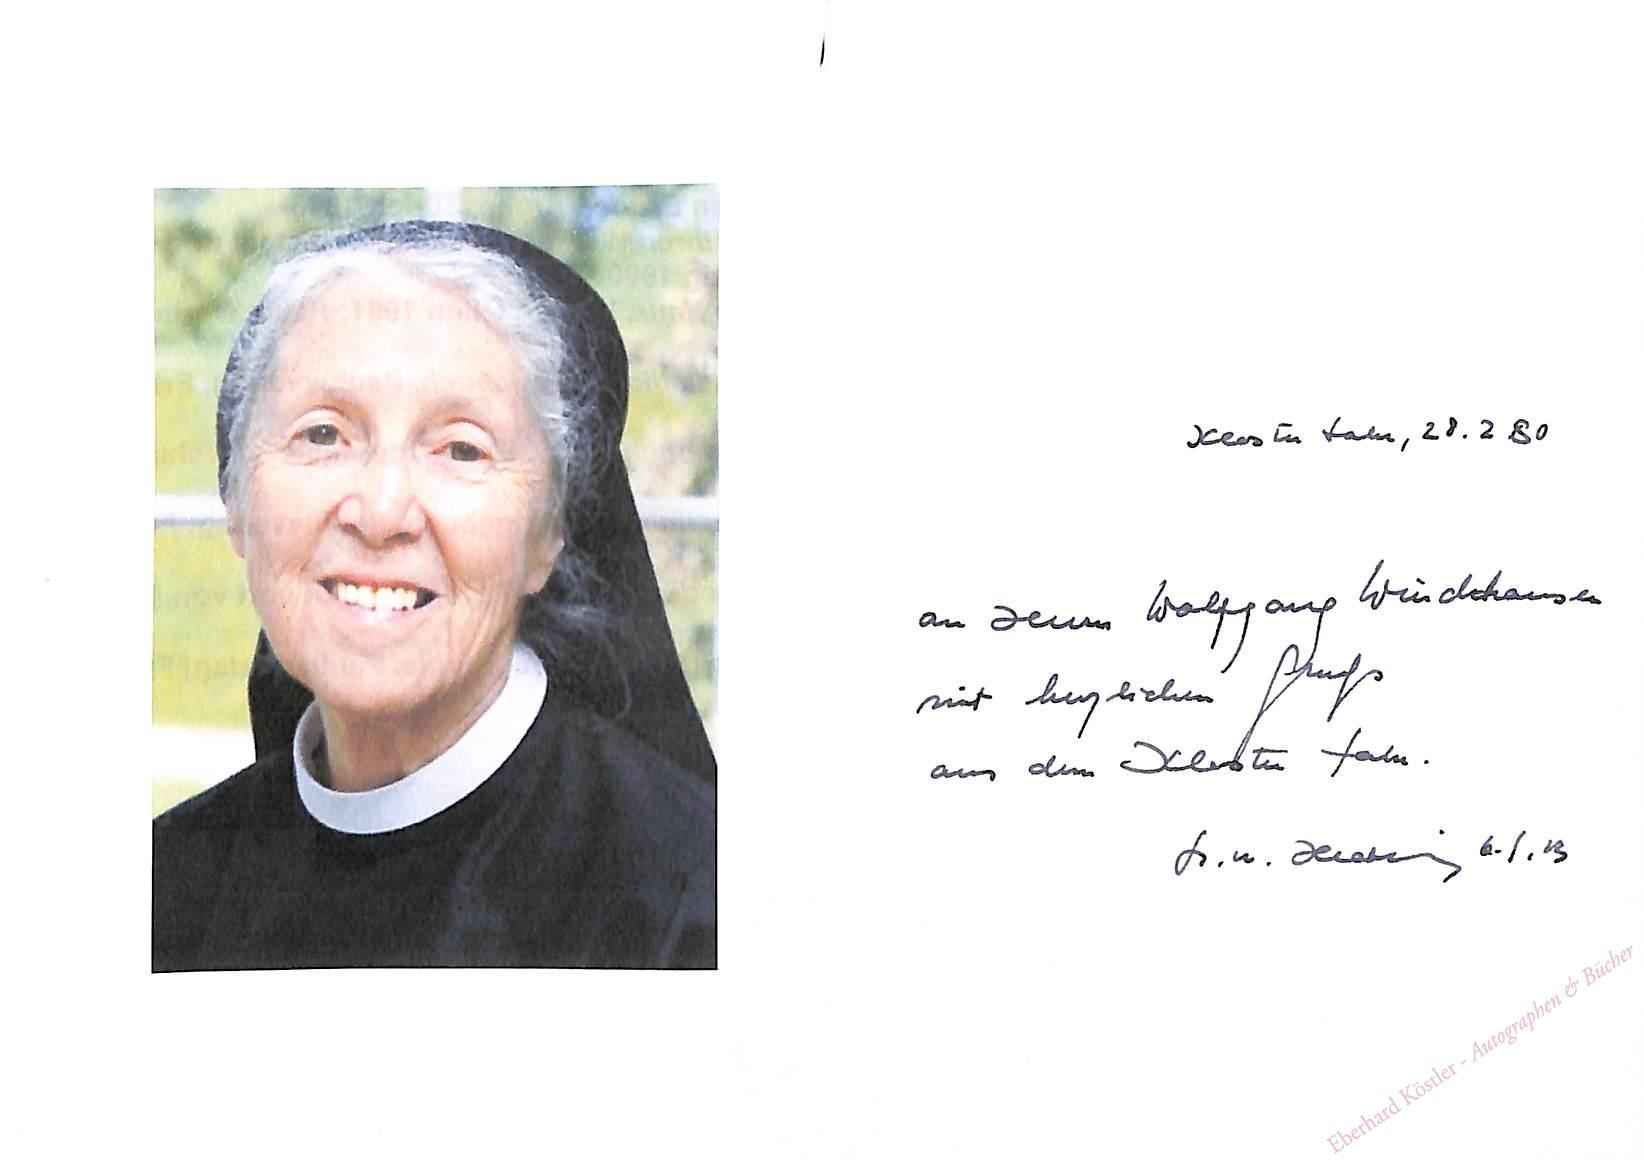 Kloster Fahr, 28.2.80
an Herrn Wolfgang Windhausen
mit herzlichem Gruß
aus dem Kloster Fahr.
Sr. M. Hedwig 6.1.13
Eberhard Köstler - Autographen & Bücher